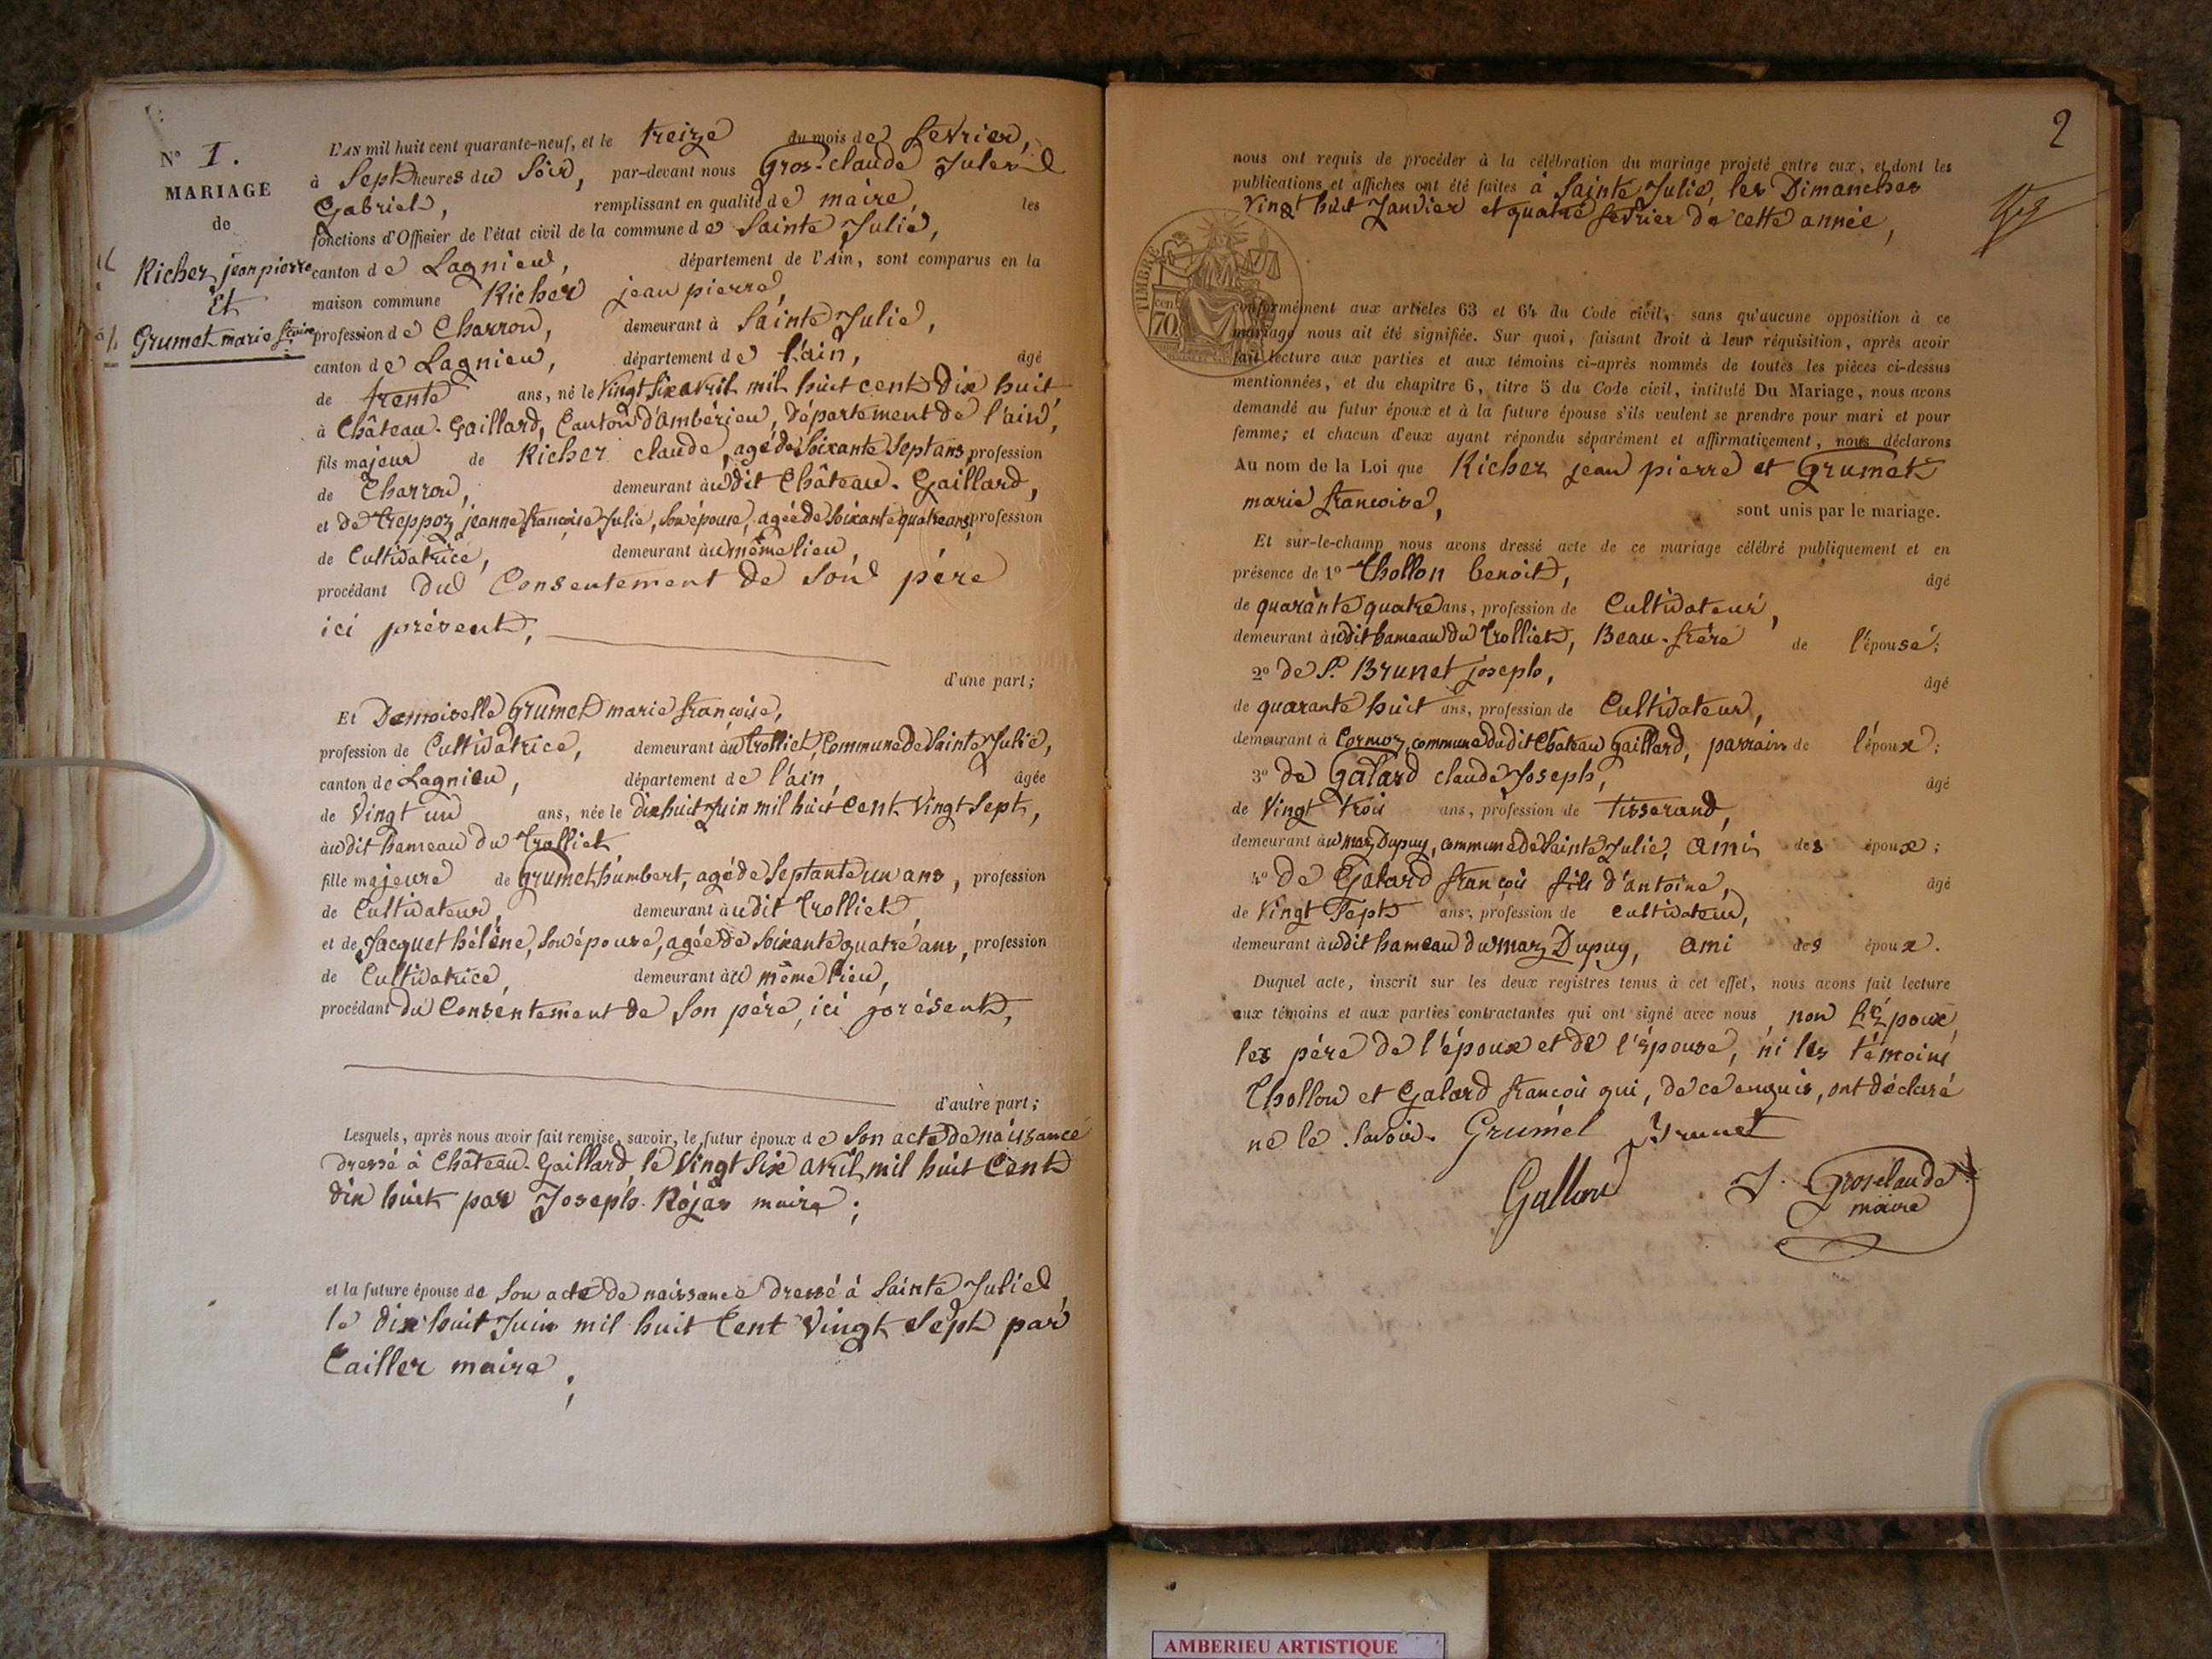 N° 1.
MARIAGE
de
Richer jean pierre
Et
Grumet marie fcoise
L'AN mil huit cent quarante-neuf, et le treize du mois de fevrier,
à Sept heures du Soir, par-devant nous Gros-claude Jules
Gabriel, remplissant en qualité de maire, les
fonctions d'Officier de l'état civil de la commune de Sainte Julie,
canton de Lagnieu, département de l'Ain, sont comparus en la
maison commune Richer jean pierre
profession de Charron, demeurant à Sainte Julie,
canton de Lagnieu, département de l'ain, âgé
de trente ans, né le Vingt Six avril mil huit cent Dix huit
à Château-Gaillard, Canton d'Ambérieu, département de l'ain,
fils majeur de Richer claude, agé de Soixante Sept ans, profession
de Charron, demeurant àudit Château-Gaillard,
et de treppoz jeanne françoise Julie, son épouse, agée de Soixante quatre ans, profession
de Cultivatrice, demeurant àu même lieu,
procédant du Consentement de Son père
ici présent,
d'une part;
Et Demoiselle Grumet marie françoise,
profession de Cultivatrice, demeurant àu trolliet, Commune de Sainte Julie,
canton de Lagnieu, département de l'ain, âgée
de Vingt un ans, née le dix huit Juin mil huit Cent Vingt Sept,
àudit hameau du trolliet
fille majeure de Grumet humbert, agé de Septante un ans, profession
de Cultivateur, demeurant àudit trolliet,
et de Jacquet hélène, Son épouse, agée de Soixante quatre ans, profession
de Cultivatrice, demeurant àu même lieu,
procédant du Consentement de Son père, ici présent,
d'autre part;
Lesquels, après nous avoir fait remise, savoir, le futur époux de Son acte de naissance
dressé à Château-Gaillard, le Vingt Six avril mil huit Cent
dix huit par Joseph Rojas maire;
et la future épouse de Son acte de naissance dressé à Sainte Julie
le dix huit Juin mil huit Cent Vingt Sept par
Cailler maire;
2
nous ont requis de procéder à la célébration du mariage projeté entre eux, et dont les
publications et affiches ont été faites à Sainte Julie, les Dimanches
Vingt huit Janvier et quatre fevrier de cette année,
TIMBRE
70 cen
conformément aux articles 63 et 64 du Code civil, sans qu'aucune opposition à ce
mariage nous ait été signifiée. Sur quoi, faisant droit à leur réquisition, après avoir
fait lecture aux parties et aux témoins ci-après nommés de toutes les pièces ci-dessus
mentionnées, et du chapitre 6, titre 5 du Code civil, intitulé Du Mariage, nous avons
demandé au futur époux et à la future épouse s'ils veulent se prendre pour mari et pour
femme; et chacun d'eux ayant répondu séparément et affirmativement, nous déclarons
Au nom de la Loi que Richer jean pierre et Grumet
marie francoise, sont unis par le mariage.
Et sur-le-champ nous avons dressé acte de ce mariage célébré publiquement et en
présence de 1° Thollon benoit, âgé
de quarante quatre ans, profession de Cultivateur,
demeurant àudit hameau du trolliet, Beau-frère de l'épouse;
2° de S.r Brunet joseph, âgé
de quarante huit ans, profession de Cultivateur,
demeurant à Cormoz, commune dudit Château Gaillard, parrain de l'époux;
3° de Galard claude Joseph, âgé
de Vingt trois ans, profession de tisserand,
demeurant àu maz Dupuy, commune de Sainte Julie, ami des époux;
4° de Galard françois fils d'antoine, âgé
de Vingt Sept ans, profession de cultivateur,
demeurant àudit hameau du maz Dupuy, ami des époux.
Duquel acte, inscrit sur les deux registres tenus à cet effet, nous avons fait lecture
aux témoins et aux parties contractantes qui ont signé avec nous, non les époux,
les père de l'époux et de l'épouse, ni les témoins
Thollon et Galard françois qui, de ce enquis, ont déclaré
ne le savoir. Grumel Brunet
Gallard J. Grosclaude
maire
AMBERIEU ARTISTIQUE